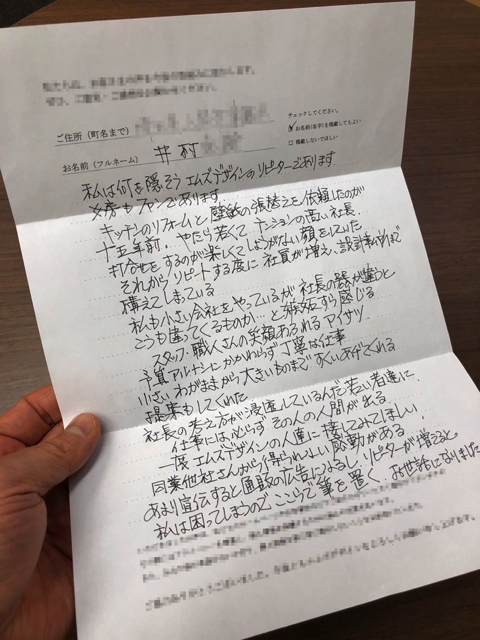 チェックしてください。
ご住所（町名まで）
お名前(名字)を掲載してもよい
お名前（フルネーム） 井村
掲載しないでほしい
私は何を隠そう エムズデザインのリピーターであります
女房もファンであります。
キッチンのリフォームと 壁紙の張替えを依頼したのが
十五年前. やたら若くて テンションの高い社長.
打合せをするのが楽しくてしょうがない顔をしていた
それから リピートする度に 社員が増え、設計事ム所まで
構えてしまっている
私も小さい会社をやっているが 社長の器が違うと
こうも違ってくるものか…と 嫉妬すら感じる
スタッフ・職人さんの笑顔あふれる アイサツ
予算アルナシに かかわらず 丁寧な仕事
小さい わがままから 大きいものまで すくいあげてくれる
提案もしてくれた
社長の考え方が 浸透しているんだ 若い者達に
仕事には必らず その人の人間が出る.
一度 エムズデザインの人達に 接してみてほしい.
同業他社さんから 得られない 感動がある
あまり宣伝すると 通販の広告になるし. リピーターが増えると
私は困ってしまうので ここらで 筆を置く. お世話になりました